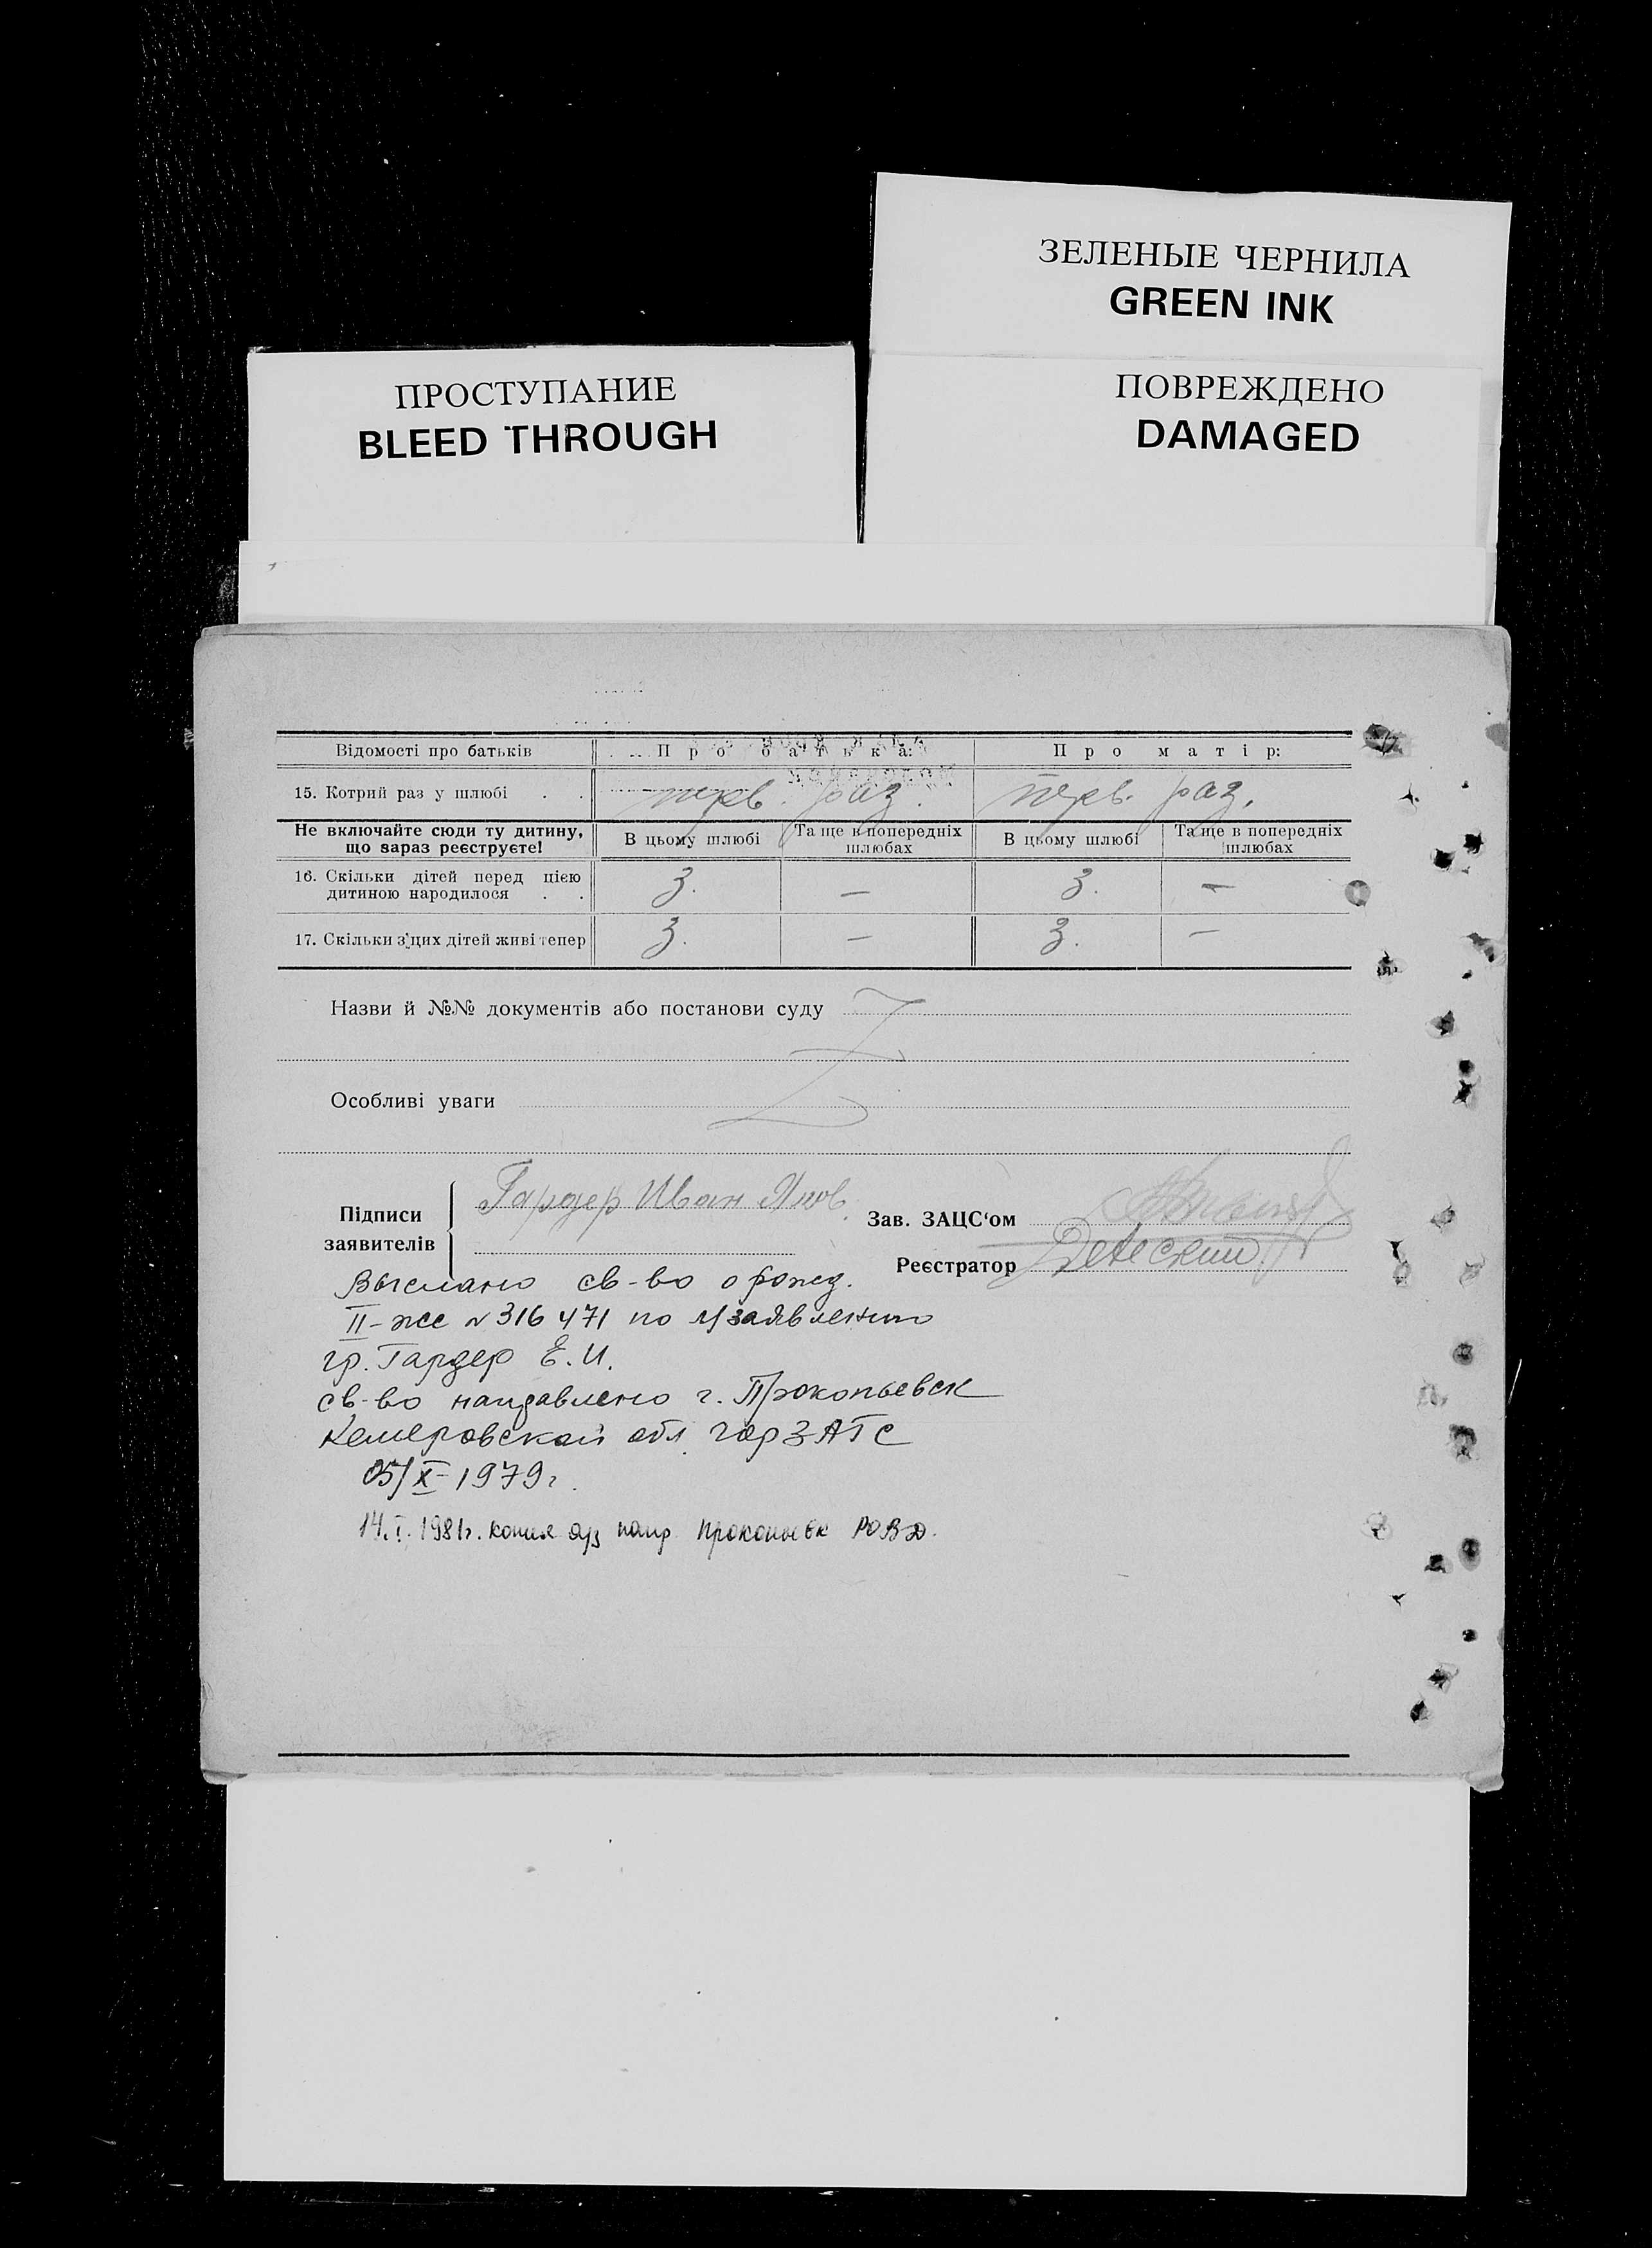 ЗЕЛЕНЫЕ ЧЕРНИЛА
GREEN INK
ПРОСТУПАНИЕ
BLEED THROUGH
ПОВРЕЖДЕНО
DAMAGED
Відомості про батьків Про батька: Про матір:
15. Котрий раз у шлюбі . . перв. раз. перв. раз.
Не включайте сюди ту дитину, що зараз реєструєте! В цьому шлюбі Та ще в попередніх шлюбах В цьому шлюбі Та ще в попередніх шлюбах
16. Скільки дітей перед цією дитиною народилося . . 3. — 3. —
17. Скільки з цих дітей живі тепер 3. — 3. —
Назви й №№ документів або постанови суду
Z
Особливі уваги
Підписи заявителів Гардер Иван Яков.
Зав. ЗАЦС'ом
Реєстратор
Выслано св-во о рожд.
II-жс N 316471 по заявлению
гр. Гардер Е.И.
св-во направлено г. Прокопьевск
Кемеровской обл горЗАГС
05/X-1979г.
14.I.1981г. копия а/з напр Прокопьевск РОВД.